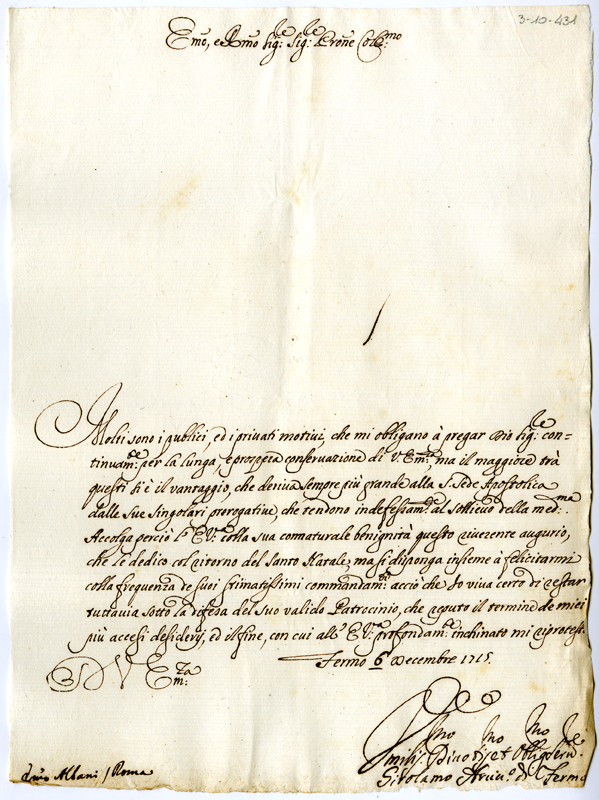 3-10-431
Emo, e Rmo Sig:re Sig:re Prone Colmo:
Molti sono i publici, ed i privati motivi, che mi obligano à pregar Dio Sig:re con=
tinuam:te per la lunga, e prospera conservazione di V. Em:a, ma il maggiore trà
questi si è il vantaggio, che deriva sempre più grande alla S. Sede Apostolica
dalle sue singolari prerogative, che tendono indefessam:te al sollievo della med:ma
Accolga perciò l'E V:a colla sua connaturale benignità questo riverente augurio,
che le dedico col ritorno del Santo Natale, ma si disponga insieme à felicitarmi
colla frequenza de suoi stimatissimi commandam:ti acciò che Io viva certo di restar
tuttavia sotto la difesa del suo valido Patrocinio, che reputo il termine de miei
più accesi desiderij, ed il fine, con cui all' E V:a profondam:te inchinato mi riprotest:
Fermo 6 Decembre 1715.
D V Em:za
Umilis:mo Divotis:mo et Obligs:mo Ser:re
Girolamo Arciv:o di Fermo
Albani / Roma